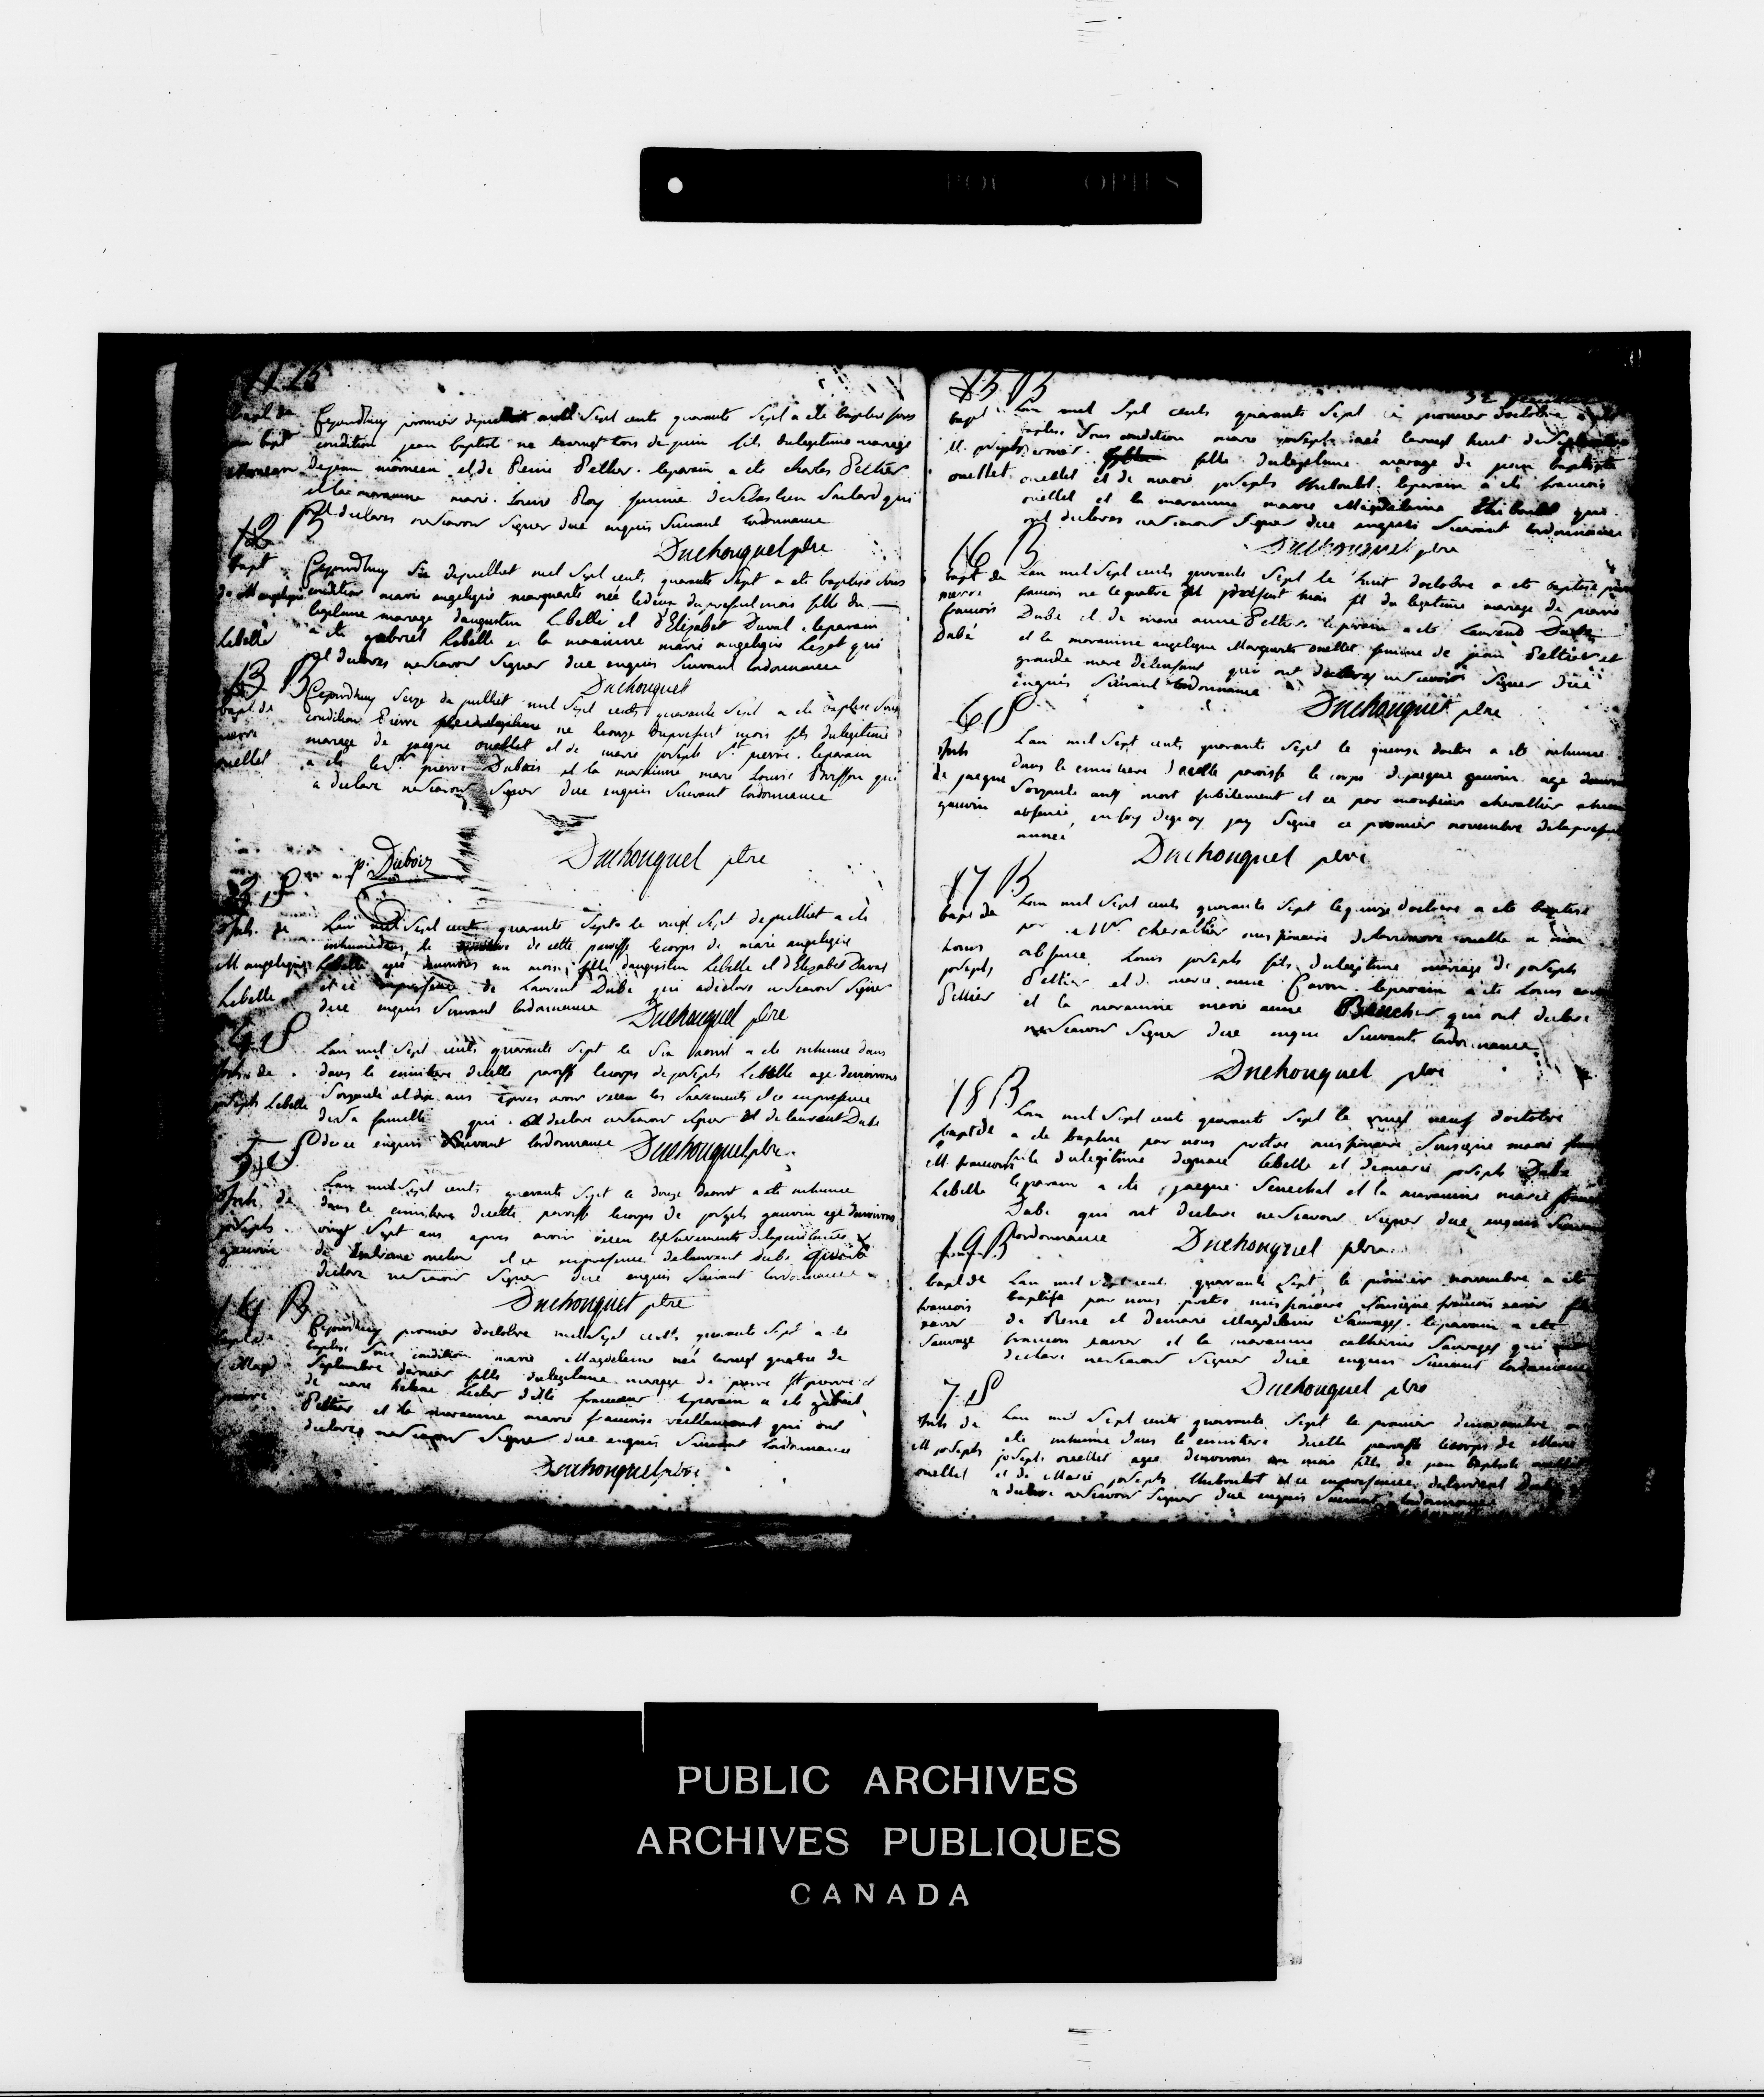 11 B
bapt de
jean bapt
morneau
Cejourdhuy premier dejuillet mil Sept cents quarante Sept a ete baptise sous
condition jean baptist ne levingt trois de juin fils dulegitime mariage
dejean morneau et de Reine Peltier. leparain a ete charles Peltier
et la maraine marie. Louise Roy femme deSebastien Soulard qui
ont declares nescavoir Signer due enquis Suivant lordonnance
Duchouquet ptre
12 B
bapt
de M angelique
Lebelle
Cejourdhuy Six dejuilliet mil Sept cents quarante Sept a ete baptise sous
condition marie angelique marguerite neé ledeux dupresent mois fille du
legitime mariage daugustin Lebelle et d'Elizabet Duval. leparain
a ete gabriel Lebelle et la maraine marie angelique Lizot qui
ont declares nescavoir Signer due enquis Suivant lordonnance
Duchouquet
13 B
bapt de
pierre
ouellet
Cejourdhuy Seize de juilliet mil Sept cents quarante Sept a ete baptise Sous
condition Pierre ne leonze dupresent mois fils dulegitime
mariage de jacque ouellet et de marie joseph St pierre. leparain
a ete le Sr pierre Dubois et la maraine marie Louise Brisson qui
a declare nescavoir Signer due enquis Suivant lordonnance
Duchouquel ptre
p. Dubois
3 S
Inh. de
M angelique
Lebelle
Lan mil Sept cents quarante Sept le vingt Sept dejuilliet a ete
inhumé dans le cimitiere de cette paroisse lecorps de marie angelique
Lebelle ageé denviron un mois, fille daugustin Lebelle et d'Elizabet Duval
et ce enpresence de Laurent Dubé qui adeclare nescavoir Signer
due enquis Suivant lordonnance
Duchouquel ptre
4 S
Inh. de
joseph Lebelle
Lan mil Sept cents quarante Sept le Six aoust a ete inhume dans
dans le cimitiere dicelle paroisse lecorps dejoseph Lebelle age denvirons
Soixante et dix ans apres avoir receu les Sacrements et ce enpresence
desa famille qui. declare nescavoir signer et de laurent Dube
de ce enquis Suivant lordonnance
Duchouquel ptre.
5 S
Inh. de
joseph
gauvin
Lan mil Sept cents quarante Sept le douze daoust a ete inhume
dans le cimitiere dicelle paroisse lecorps de joseph gauvin age denvirons
vingt Sept ans apres avoir receu lesSacrements depenitance
de extreme onction et ce enpresence delaurant Dube qui
declare nescavoir Signer due enquis Suivant lordonnance
Duchouquet ptre
14 B
bapt de
Magd
pierre
Cejourdhuy premier doctobre mil Sept cents quarante Sept a ete
baptise Sous condition marie Magdeleine neé levingt quatre de
Septembre dernier fille dulegitime mariage de pierre St pierre et
de marie helene leclerc dit francoeur leparain a ete gabriel
Peltier et la maraine marie francoise veillancourt qui ont
declares nescavoir Signer due enquis Suivant lordonnance
Duchouquel ptre
15 B
bapt
M. joseph
ouellet
Lan mil Sept cents quarante Sept le premier doctobre a ete
baptise Sous condition marie joseph neé levingt huit deSeptembre
dernier. fille dulegitime mariage de jean baptiste
ouellet et de marie joseph thiboutot. leparain a ete francois
ouellet et la maraine marie Magdelaine thiboutot qui
ont declares nescavoir Signer due enquis Suivant lordonnance
Duchouquet ptre
16 B
bapt de
pierre
francois
Dubé
Lan mil Sept cents quarante Sept le huit doctobre a ete baptise pierre
francois ne lequatre du present mois fils du legitime mariage de pierre
Dubé et de marie anne Peltier. leparain a ete Laurend Dubé
et la maraine angelique Marguerite ouellet femme de jean Peltier et
grande mere delenfant qui ont declares nescavoir Signer due
enquis Suivant lordonnance
Duchouquet ptre
6 S
Inh
de jacque
gauvin
Lan mil Sept cents quarante Sept le quinze doctre a ete inhume
dans le cimitiere dicelle paroisse le corps dejacque gauvin age denviron
Soixante ans mort Subitement et ce par monsieur chevallier
absence, en foy dequoy jay Signe ce premier novembre delapresente
année
Duchouquel ptre
17 B
bapt de
Louis
joseph
Peltier
Lan mil Sept cents quarante Sept lequinze doctobre a ete baptise
par Mr chevallier missionaire delariviere ouelle a mon
absence Louis joseph fils dulegitime mariage de joseph
Peltier et de marie anne Gavon. leparain a ete Louis
et la maraine marie anne Boucher qui ont declare
nescavoir Signer due enquis Suivants lordonnance
Duchouquel ptre
18 B
bapt de
M. francoise
Lebelle
Lan mil Sept cents quarante Sept le vingt neuf doctobre
a ete baptise par nous pretre missionaire Sousigne marie
fille dulegitime dignace lebelle et demarie joseph Dubé
leparain a ete jacque Senechal et la maraine marie
Dubé qui ont declare nescavoir Signer due enquis Suivant
lordonnance
Duchouquel ptre
19 B
bapt de
francois
xavier
Sauvage
Lan mil Sept cents quarante Sept le premier novembre a ete
baptise par nous pretre missionaire Sousigne francois xavier fils
de Rene et Demarie Magdeleine Sauvages. leparain a ete
francois xavier et la maraine catherine Sauvages qui ont
declare nescavoir Signer due enquis Suivant lordonnance
Duchouquel ptre
7 S
Inh de
M joseph
ouellet
Lan mil Sept cents quarante Sept le premier denovembre a
ete inhumé dans le cimitiere dicelle paroisse lecorps de Marie
joseph ouellet agee denvirons un mois fille de jean baptiste ouellet
et de Marie joseph thiboutot et ce enpresence delaurent Dubé
a declare nescavoir Signer due enquis Suivant lordonnance
PUBLIC ARCHIVES
ARCHIVES PUBLIQUES
CANADA